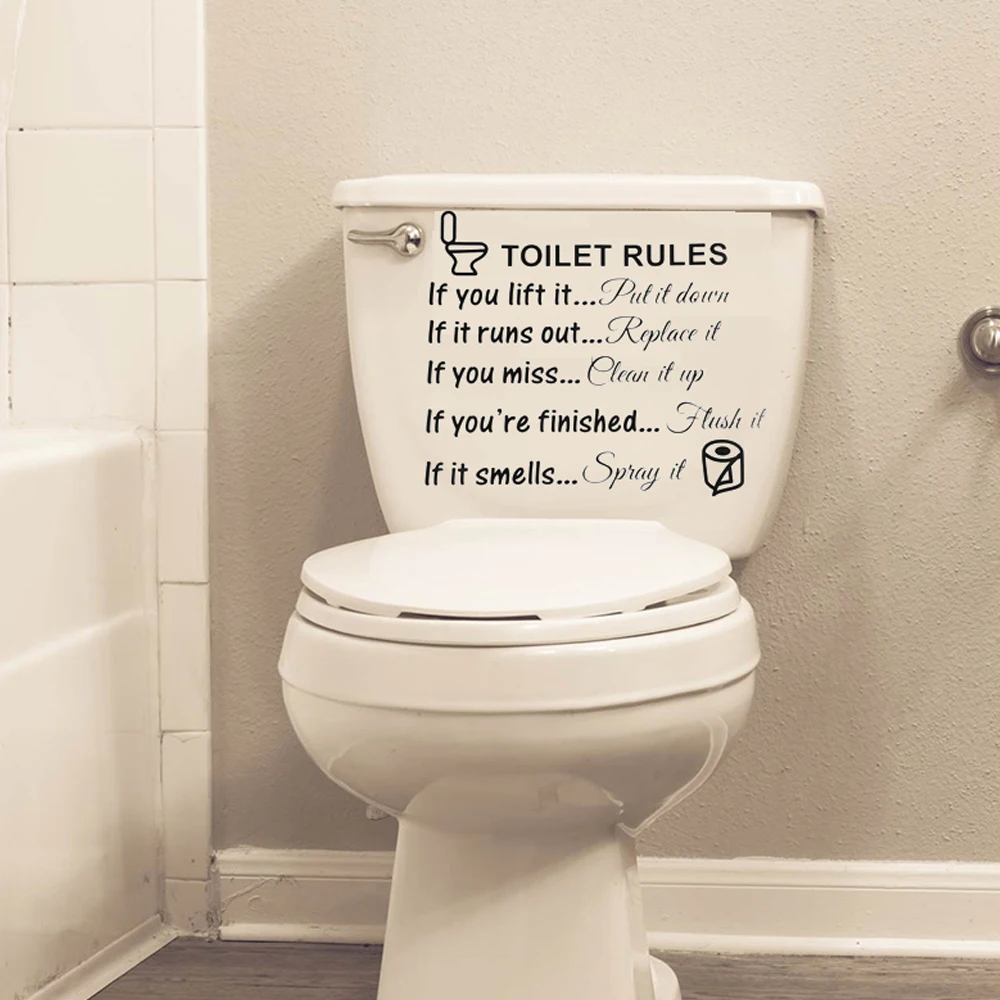 TOILET RULES
If you lift it...Put it down
If it runs out...Replace it
If you miss... Clean it up
If you're finished... Flush it
If it smells...Spray it